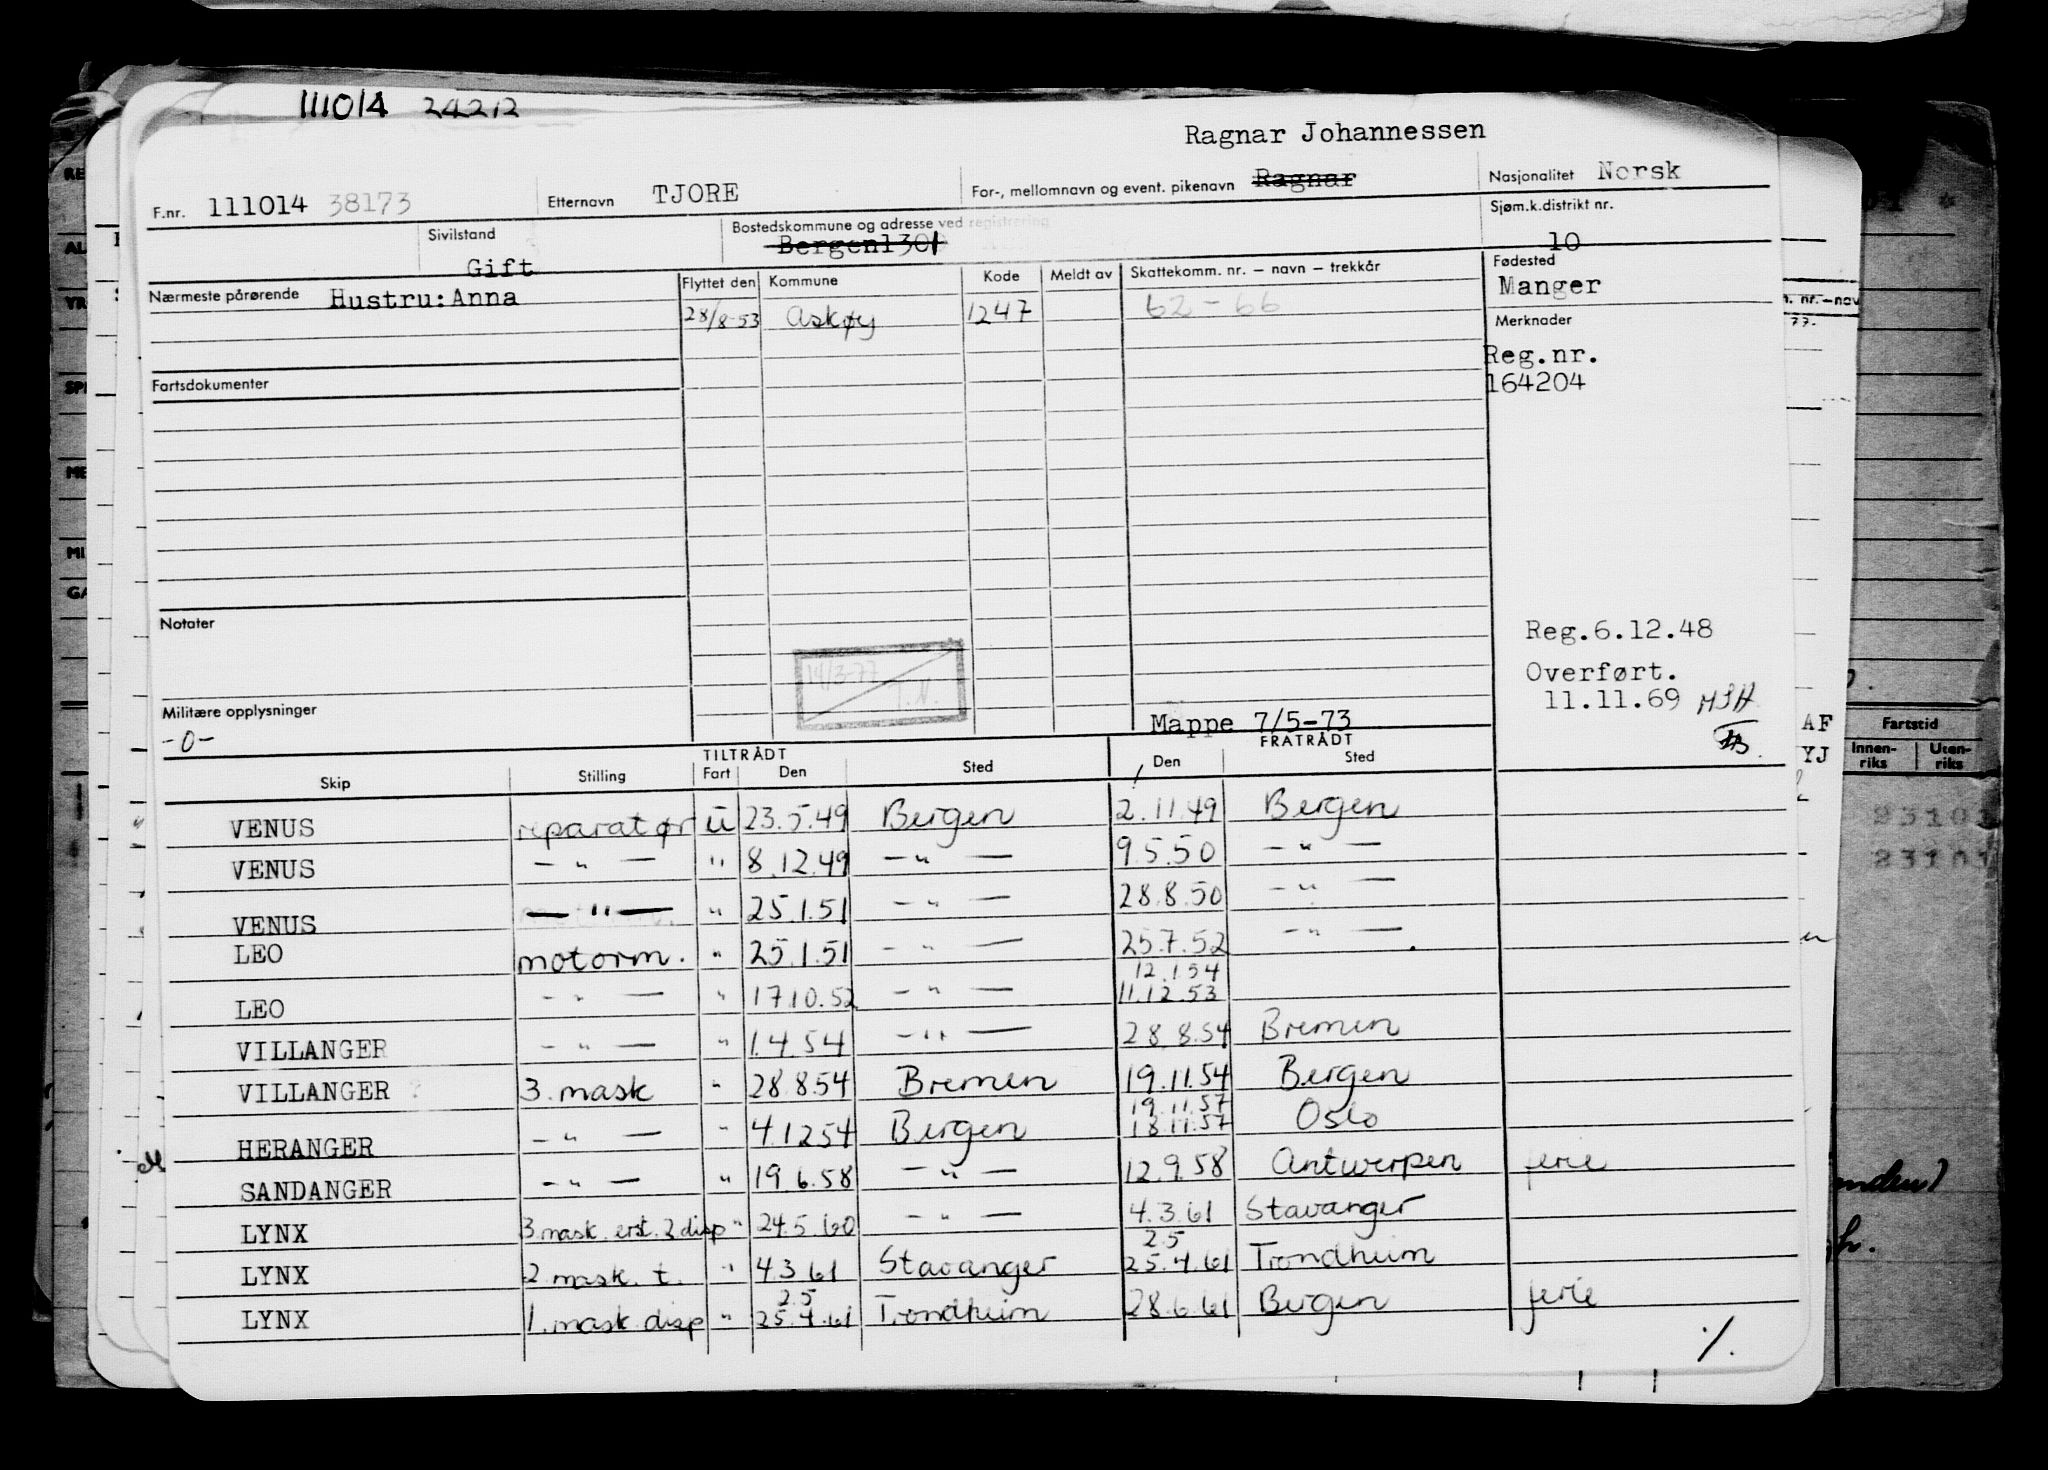 111014 24212
Ragnar Johannessen
F.nr. 111014 38173 Etternavn TJORE For-, mellomnavn og event. pikenavn Ragnar Nasjonalitet Norsk
Sivilstand Gift Bostedskommune og adresse ved registrering Bergen1301 Sjøm.k.distrikt nr. 10
Nærmeste pårørende Hustru: Anna Flyttet den Kommune Kode Meldt av Skattekomm. nr. – navn – trekkår Fødested
Manger
28/8-53 Askøy 1247 62-66
Merknader
Reg.nr.
164204
Fartsdokumenter
Notater
Reg.6.12.48
Overført.
11.11.69
14/3-77
T.N.
Militære opplysninger
-0-
Mappe 7/5-73
TILTRÅDT FRATRÅDT
Skip Stilling Fart Den Sted Den Sted
VENUS reparatør U 23.5.49 Bergen 2.11.49 Bergen
VENUS - " - " 8.12.49 - " - 9.5.50 - " -
VENUS - " - " 25.1.51 - " - 28.8.50 - " -
LEO motorm. " 25.1.51 - " - 25.7.52 - " -
12.1.54
LEO - " - " 17.10.52 - " - 11.12.53
VILLANGER - " - " 1.4.54 - " - 28.8.54 Bremen
VILLANGER 3. mask " 28.8.54 Bremen 19.11.54 Bergen
19.11.57
HERANGER - " - " 4.12.54 Bergen 18.11.57 Oslo
SANDANGER - " - " 19.6.58 - " - 12.9.58 Antwerpen ferie
LYNX 3 mask. erst. 2 disp " 24.5.60 - " - 4.3.61 Stavanger
2.5
LYNX 2 mask. t. " 4.3.61 Stavanger 25.4.61 Trondheim
2.5
LYNX 1. mask disp " 25.4.61 Trondheim 28.6.61 Bergen ferie
%.
AF
YJ
Fartstid
Innen-
riks
Uten-
riks
23101
23101